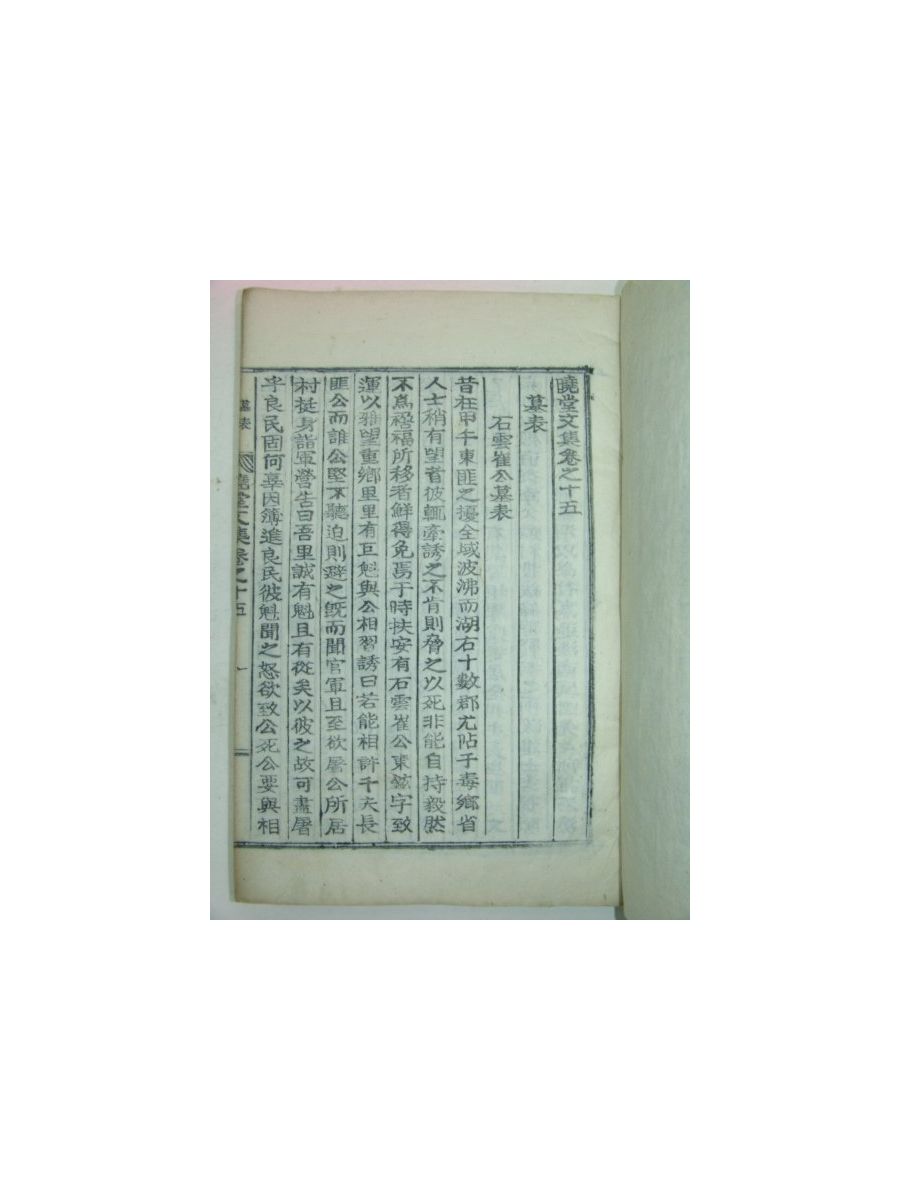 曉堂文集卷之十五
墓表
石雲崔公墓表
昔在甲午東匪之擾全域波沸而湖右十數郡尤阽于毒鄕省
人士稍有望者彼輒牽誘之不肯則脅之以死非能自持毅然
不爲禍福所移者鮮得免焉于時扶安有石雲崔公東鉉字致
運以雅望重鄕里里有巨魁與公相習誘曰若能相許千夫長
匪公而誰公堅不聽迫則避之旣而聞官軍且至欲屠公所居
村挺身詣軍營告曰吾里誠有魁且有從矣以彼之故可盡屠
乎良民固何辜因簿進良民彼魁聞之怒欲致公死公要與相
墓表
曉堂文集卷之十五
一